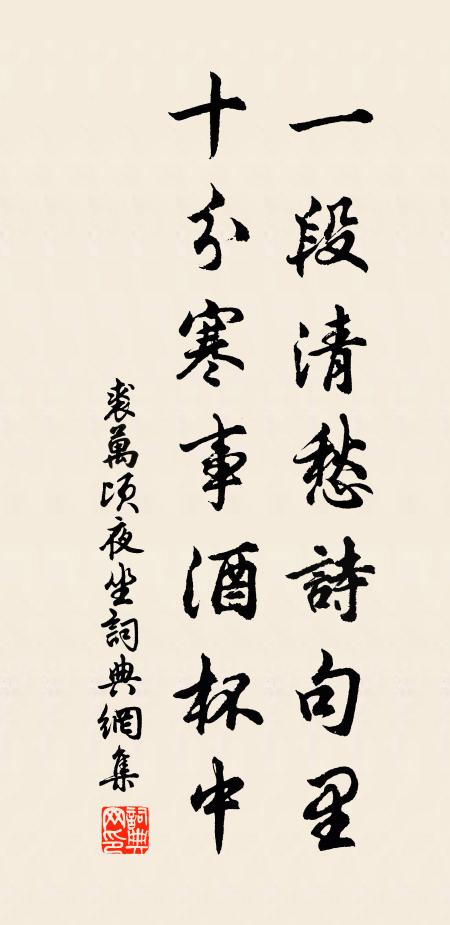 一段清愁詩句里
十分寒事酒杯中
裘萬頃夜坐詞典網集
詞典网印